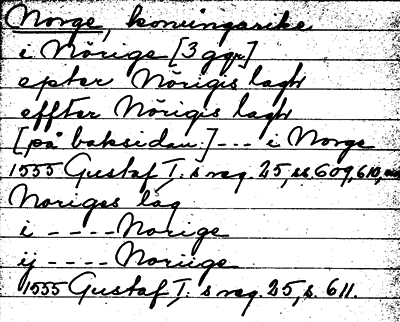 Norge, konungarike
i Nörige [3 ggr]
epter Nörigis lagh
effter Nörigis lagh
[på baksidan:] --- i Norge
1555 Gustaf I:s reg. 25, ss. 609, 610,
Noriges lag
i ---- Norige
ij ---- Noriige
1555 Gustaf I:s reg. 25, s. 611.